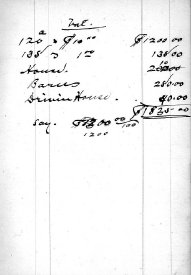 Val.
120 a $10 00 $1200.00
135 " 1 00 135.00
House. 200.00
Barns 250.00
Drivin House. 40.00
$1825.00
Say. $1200 00/100
1200